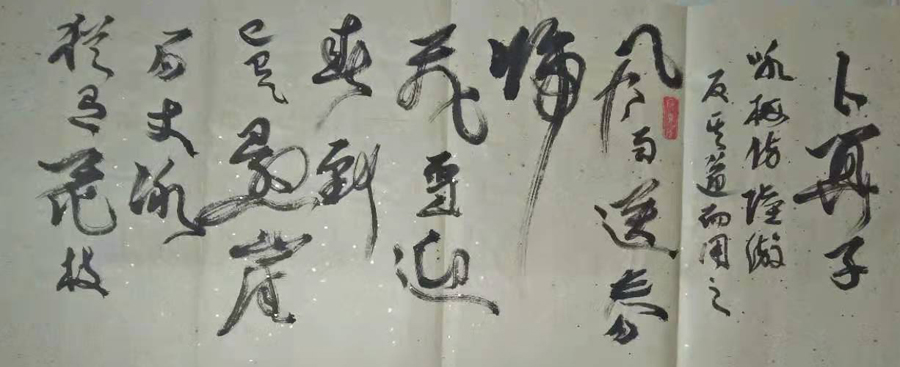 卜算子
咏梅仿陸游
反其道而用之
风雨送春
归
飛雪迎
春到
已是悬崖
百丈冰
犹有花枝